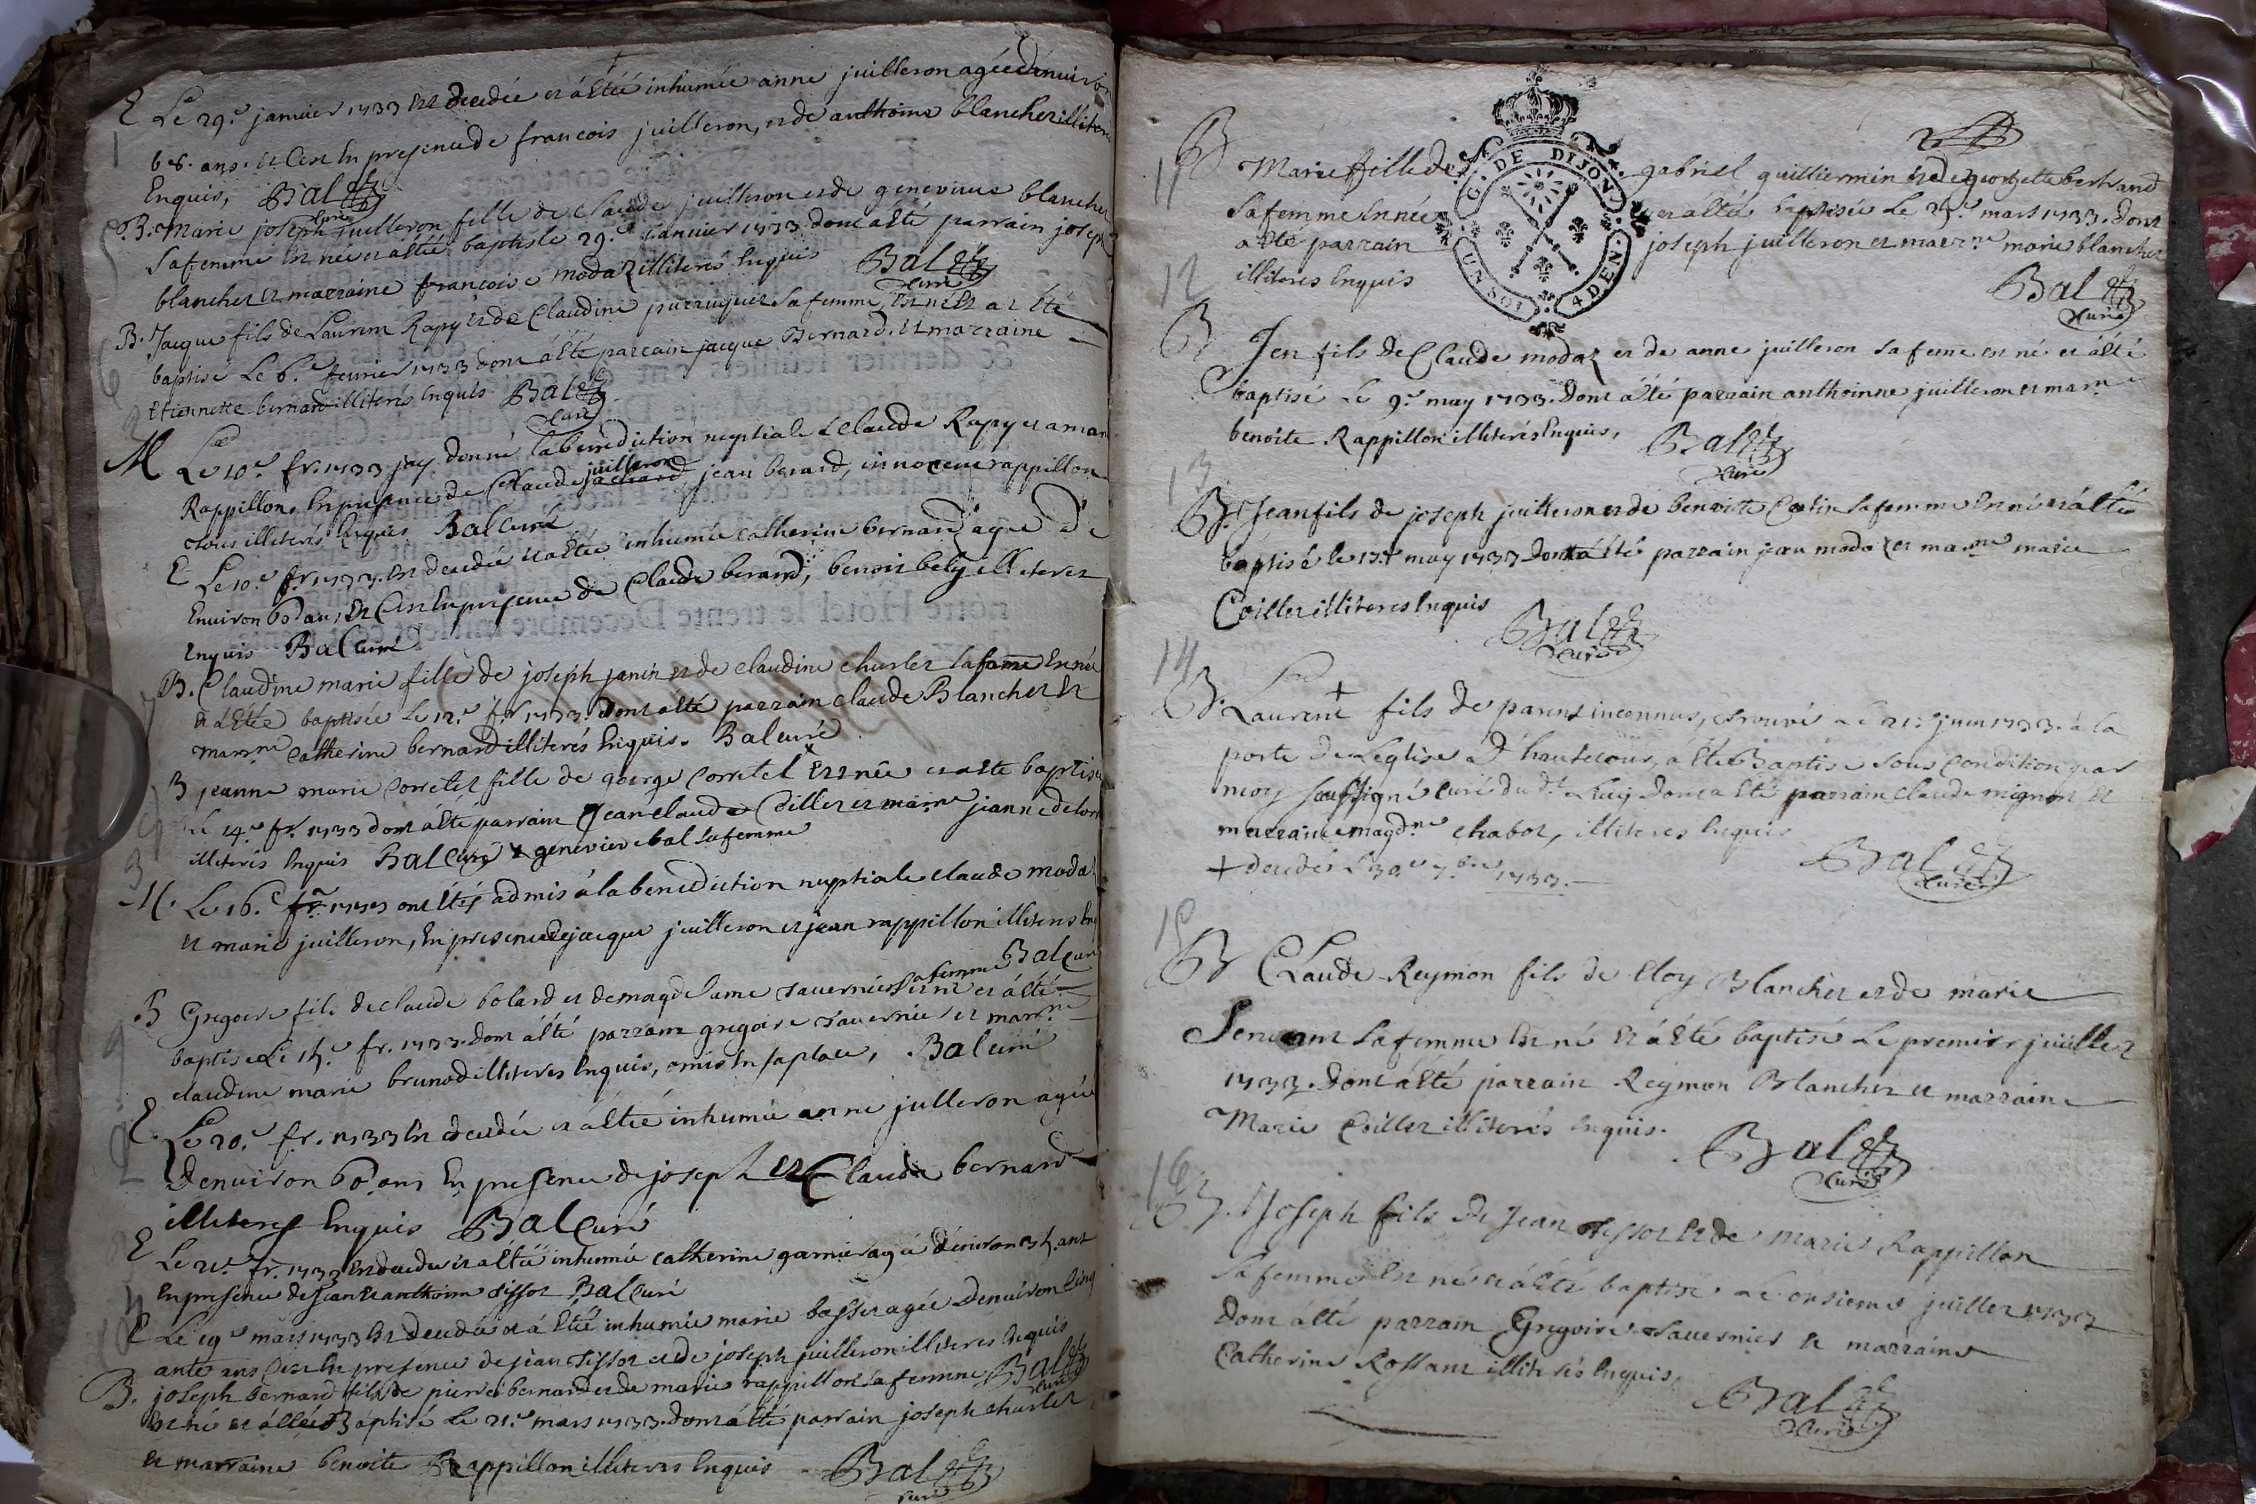 E Le 29.e janvier 1733 est decedée et a étée inhumée anne juilleron agée denviron
66. ans. et C'est En presence de francois juilleron, et de anthoine blanchet illiteres
Enquis, Bal
curé
B. Marie joseph juilleron fille de claude juilleron et de genevieve blanchet
sa femme Est née et a étée baptisée 29.e janvier 1733 dont a été parrain joseph
blanchet et marraine francoise modaz illiterés Enquis Bal
curé
B. Jacque fils de Laurent Rapy et de Claudine perruquet sa femme, Est né Et a été
baptisé Le 6.e fevrier 1733 dont a été parrain jacque Bernard. et marraine
Etiennette bernard illiterés Enquis Bal
curé
M Le 10.e fr. 1733 jay donné la benediction nuptiale a claude Rapy et a marie
Rappillon, En presence de Claude juilleron jean berard, innocent rappillon
tous illiterés Enquis Bal curé
E Le 10.e fr. 1733. Est decedée et a étée inhumée catherine bernard agée de
Environ 60 ans, Et C'est En presence de Claude berard, benoit bely illiteres
Enquis Bal Curé
B. Claudine marie fille de joseph janin et de claudine charlet sa fame Est née
et a étée baptisée Le 12.e fr. 1733. dont a été parrain claude Blanchet Et
marr.ne catherine bernard illiterés Enquis. Bal curé
B jeanne marie Corretel fille de george Corretel x Est née et a été baptisée
le 14.e fr. 1733 dont a été parrain Jean claude Coillet et marr.ne jeanne
illiterés Enquis Bal Curé x genevieve bal sa femme
M. Le 16.e fr. 1733 ont étés admis a la benediction nuptiale claude modaz
et marie juilleron, En presence de jacque juilleron et jean rappillon illiterés
Bal Curé
B Gregoire fils de claude bolard et de magdelaine tavernier sa femme Est né et a été
baptisé Le 15.e fr. 1733. dont a été parrain gregoire tavernier et marr.ne
claudine marie brunod illiteres Enquis, omis En sa place, Bal curé
E. Le 20.e fr. 1733 Est decedée et a étée inhumée anne julleron agée
denviron 60 ans En presence de joseph Et Claude bernard
illiteres Enquis Bal Curé
E Le 21.e fr. 1733 Est decedée et a étée inhumée catherine garnier agée d'environ 35. ans
En presence de jean et anthoine tissot Bal Curé
E Le 19.e mars 1733 Est decedée et a étée inhumée marie basset agée denviron cinq
ante ans C'est En presence de jean tissot et de joseph juilleron illiteres Enquis
Bal
curé
B. joseph bernard fils de pierre bernard et de marie rappillon sa femme
Est né et a été Baptisé Le 21.e mars 1733. dont a été parrain joseph charlet
et marraine benoite Rappillon illiteres Enquis Bal
curé
G. DE DIJON
UN SOL 4 DEN.
11
B Marie fille de gabriel guilliermin Et de georgette bertrand
sa femme Est née et a étée baptisée Le 25.e mars 1733. dont
a été parrain joseph juilleron et marr.ne marie blanchet
illiteres Enquis
Bal
curé
12
B Jen fils de Claude modaz et de anne juilleron sa feme est né et a été
baptisé Le 9.e may 1733. dont a été parrain anthoinne juilleron et marr.ne
benoite Rappillon illiterés Enquis, Bal
curé
13
B. Jean fils de joseph juilleron et de benoitte Catin sa femme Est né et a été
baptisé le 13.e may 1733 dont a été parrain jean modaz et marr.ne marie
Coillet illiteres Enquis
Bal
curé
14
B. Laurent + fils de parens inconnus, trouvé Le 21.e juin 1733. à la
porte de L'eglise d'hautecour, a été Baptisé sous condition par
moy soussigné Curé du dt. Lieu, dont a été parrain claude mignot et
marraine magd.ne chabot, illiteres Enquis
Bal
curé
+ decedé Le 30.e 7.bre 1733.
15
B Claude Reymon fils de Eloy Blanchet et de marie
servant sa femme Est né Et a été baptisé Le premier juillet
1733. dont a été parrain Reymon Blanchet et marraine
Marie Coillet illiterés Enquis.
Bal
curé
16
B. Joseph fils de Jean tissot Et de marie Rappillon
sa femme Est né et a été baptisé Le onsieme juillet 1733
dont a été parrain Gregoire tavernier et marraine
Catherine Rossant illiterés Enquis,
Bal
curé